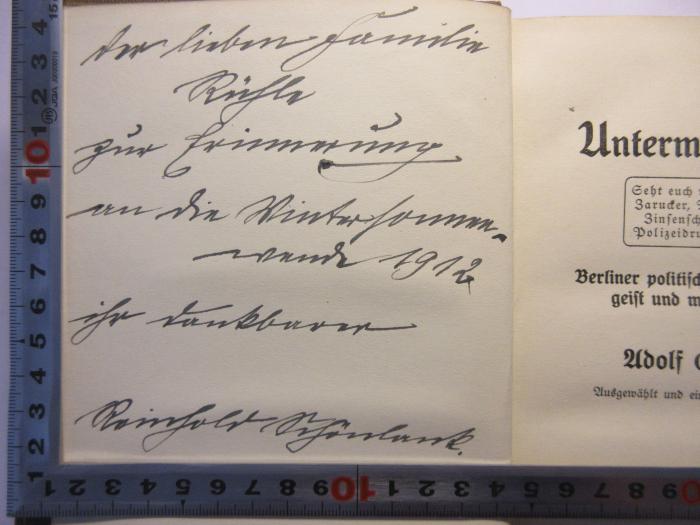 Der lieben Familie
Rühle
zur Erinnerung
an die Wintersonnen-
wende 1912
ihr dankbarer
Reinhold Schönlank.
Unterm
Seht euch
Zarucker,
Zinsensch
Polizeidru
Berliner politisch
geist und m
Adolf
Ausgewählt und ein